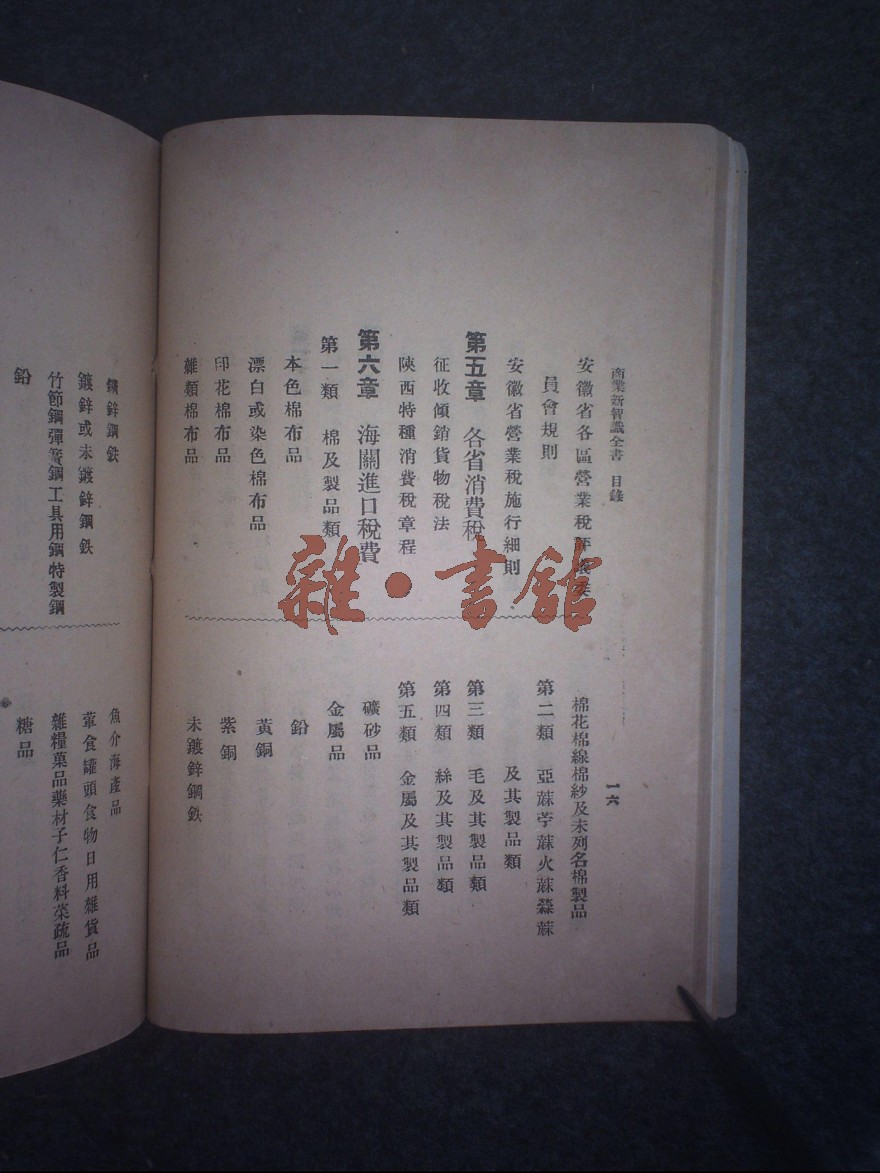 商業新智識全書 目錄
一六
安徽省各區營業稅評議委
員會規則
安徽省營業稅施行細則
第五章 各省消費稅
征收傾銷貨物稅法
陝西特種消費稅章程
第六章 海關進口稅費
第一類 棉及製品類
本色棉布品
漂白或染色棉布品
印花棉布品
雜類棉布品
棉花棉線棉紗及未列名棉製品
第二類 亞蔴苧蔴火蔴蕁蔴
及其製品類
第三類 毛及其製品類
第四類 絲及其製品類
第五類 金屬及其製品類
礦砂品
金屬品
鉛
黃銅
紫銅
未鍍鋅鋼鉄
鍍鋅鋼鉄
鍍鋅或未鍍鋅鋼鉄
竹節鋼彈簧鋼工具用鋼特製鋼
鉛
魚介海產品
葷食罐頭食物日用雜貨品
雜糧菓品藥材子仁香料菜疏品
糖品
雜·書館